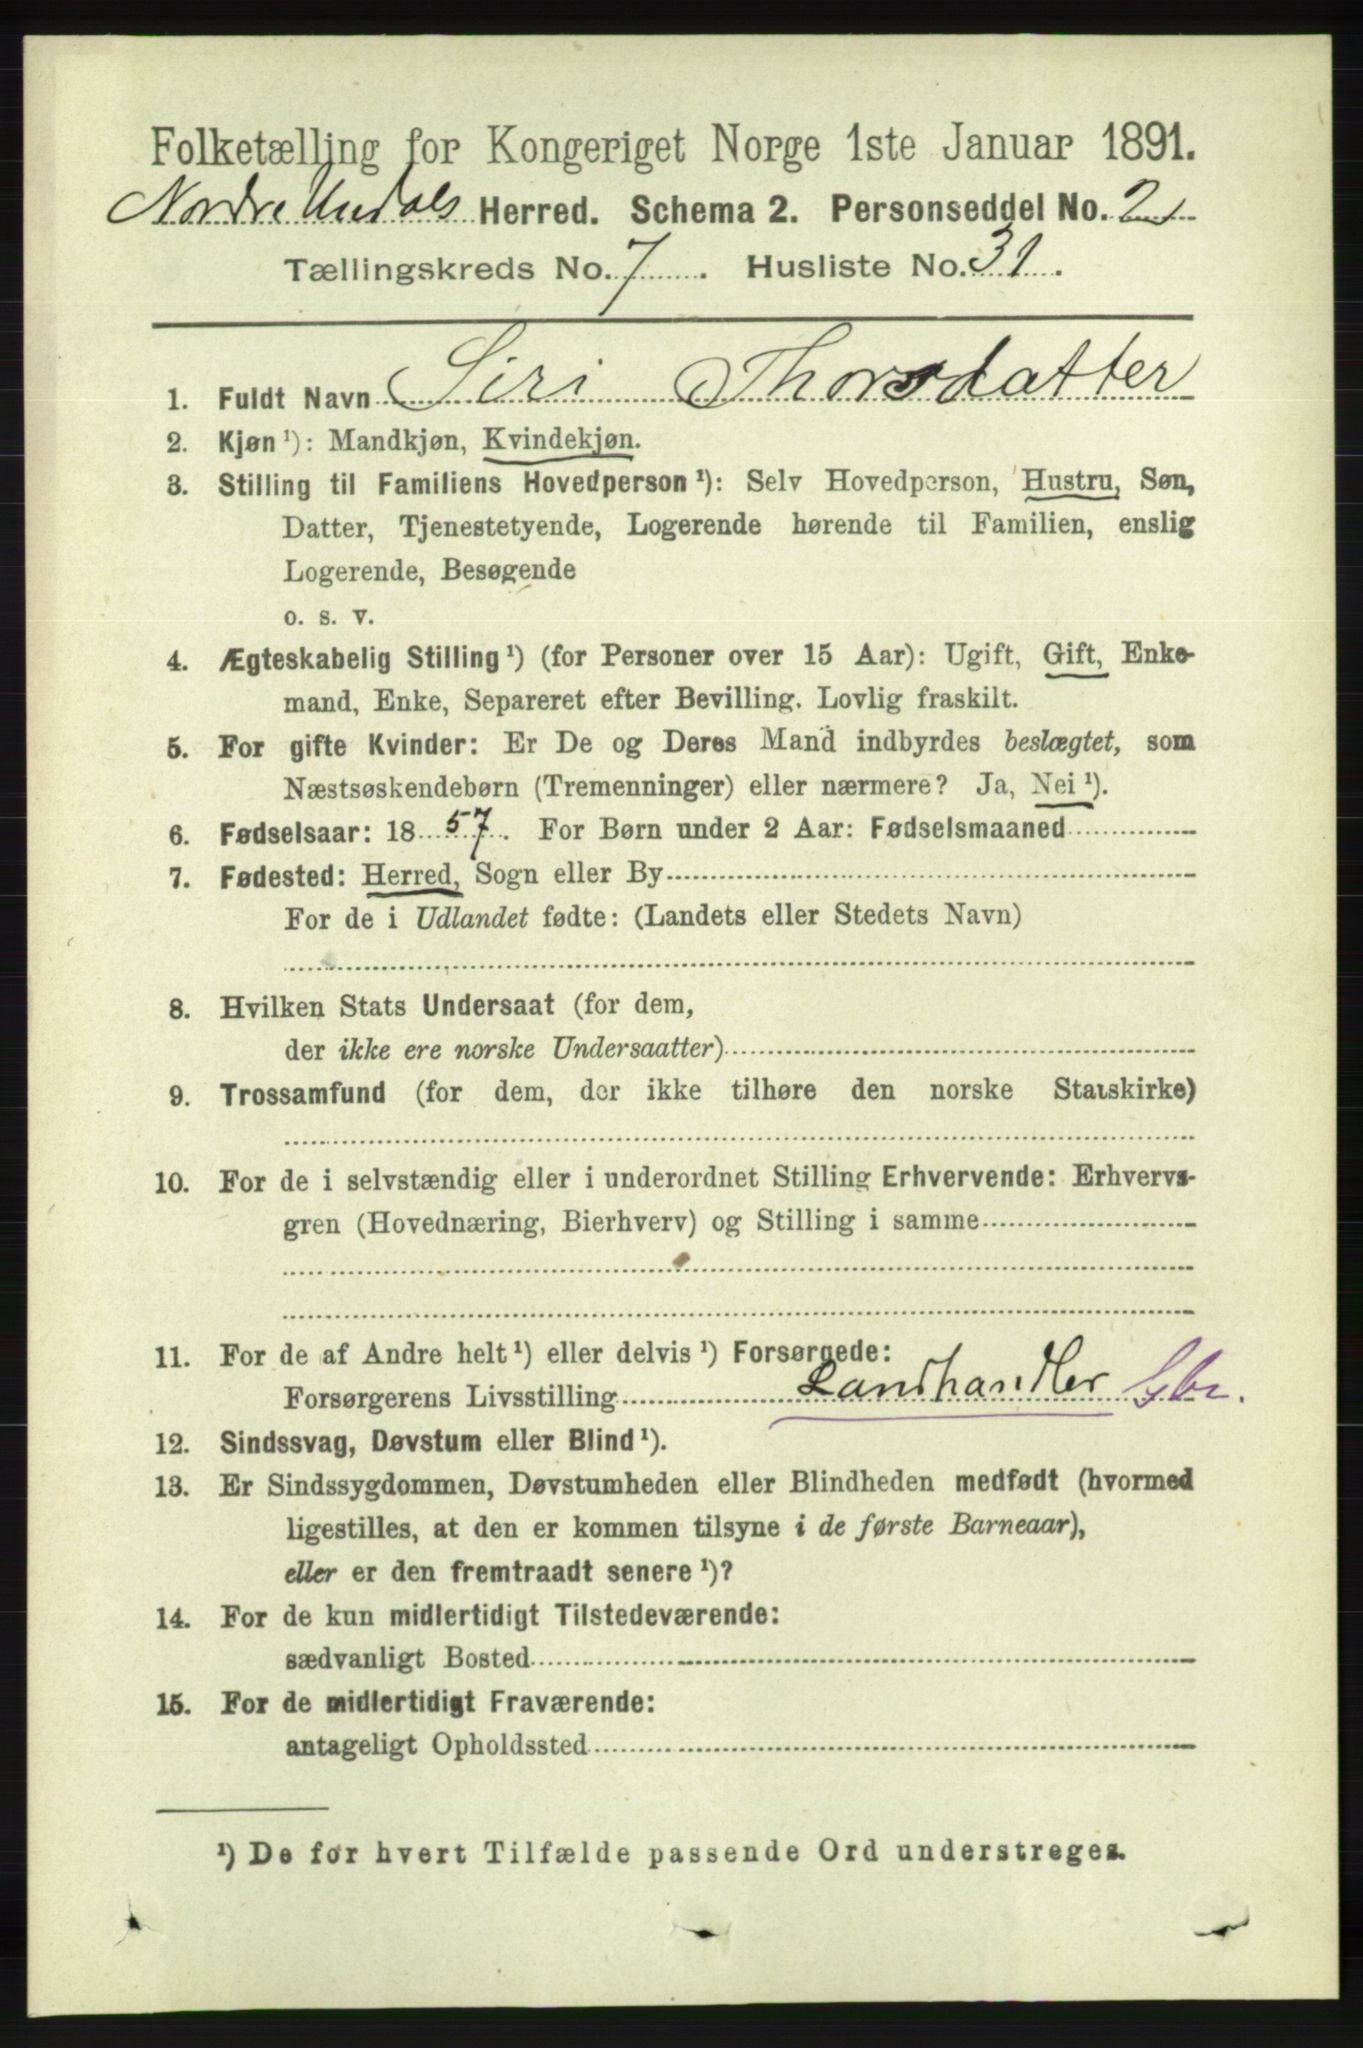 Folketælling for Kongeriget Norge 1ste Januar 1891.
Nordre Undals Herred. Schema 2. Personseddel No. 2
Tællingskreds No. 7. Husliste No. 31.
1. Fuldt Navn Siri Thorsdatter
2. Kjøn ¹): Mandkjøn, Kvindekjøn.
3. Stilling til Familiens Hovedperson ¹): Selv Hovedperson, Hustru, Søn,
Datter, Tjenestetyende, Logerende hørende til Familien, enslig
Logerende, Besøgende
o. s. v.
4. Ægteskabelig Stilling ¹) (for Personer over 15 Aar): Ugift, Gift, Enke-
mand, Enke, Separeret efter Bevilling. Lovlig fraskilt.
5. For gifte Kvinder: Er De og Deres Mand indbyrdes beslægtet, som
Næstsøskendebørn (Tremenninger) eller nærmere? Ja, Nei ¹).
6. Fødselsaar: 18 57. For Børn under 2 Aar: Fødselsmaaned
7. Fødested: Herred, Sogn eller By
For de i Udlandet fødte: (Landets eller Stedets Navn)
8. Hvilken Stats Undersaat (for dem,
der ikke ere norske Undersaatter)
9. Trossamfund (for dem, der ikke tilhøre den norske Statskirke)
10. For de i selvstændig eller i underordnet Stilling Erhvervende: Erhvervs-
gren (Hovednæring, Bierhverv) og Stilling i samme
11. For de af Andre helt ¹) eller delvis ¹) Forsørgede:
Forsørgerens Livsstilling Landhandler
12. Sindssvag, Døvstum eller Blind ¹).
13. Er Sindssygdommen, Døvstumheden eller Blindheden medfødt (hvormed
ligestilles, at den er kommen tilsyne i de første Barneaar),
eller er den fremtraadt senere ¹)?
14. For de kun midlertidigt Tilstedeværende:
sædvanligt Bosted
15. For de midlertidigt Fraværende:
antageligt Opholdssted
¹) De for hvert Tilfælde passende Ord understreges.